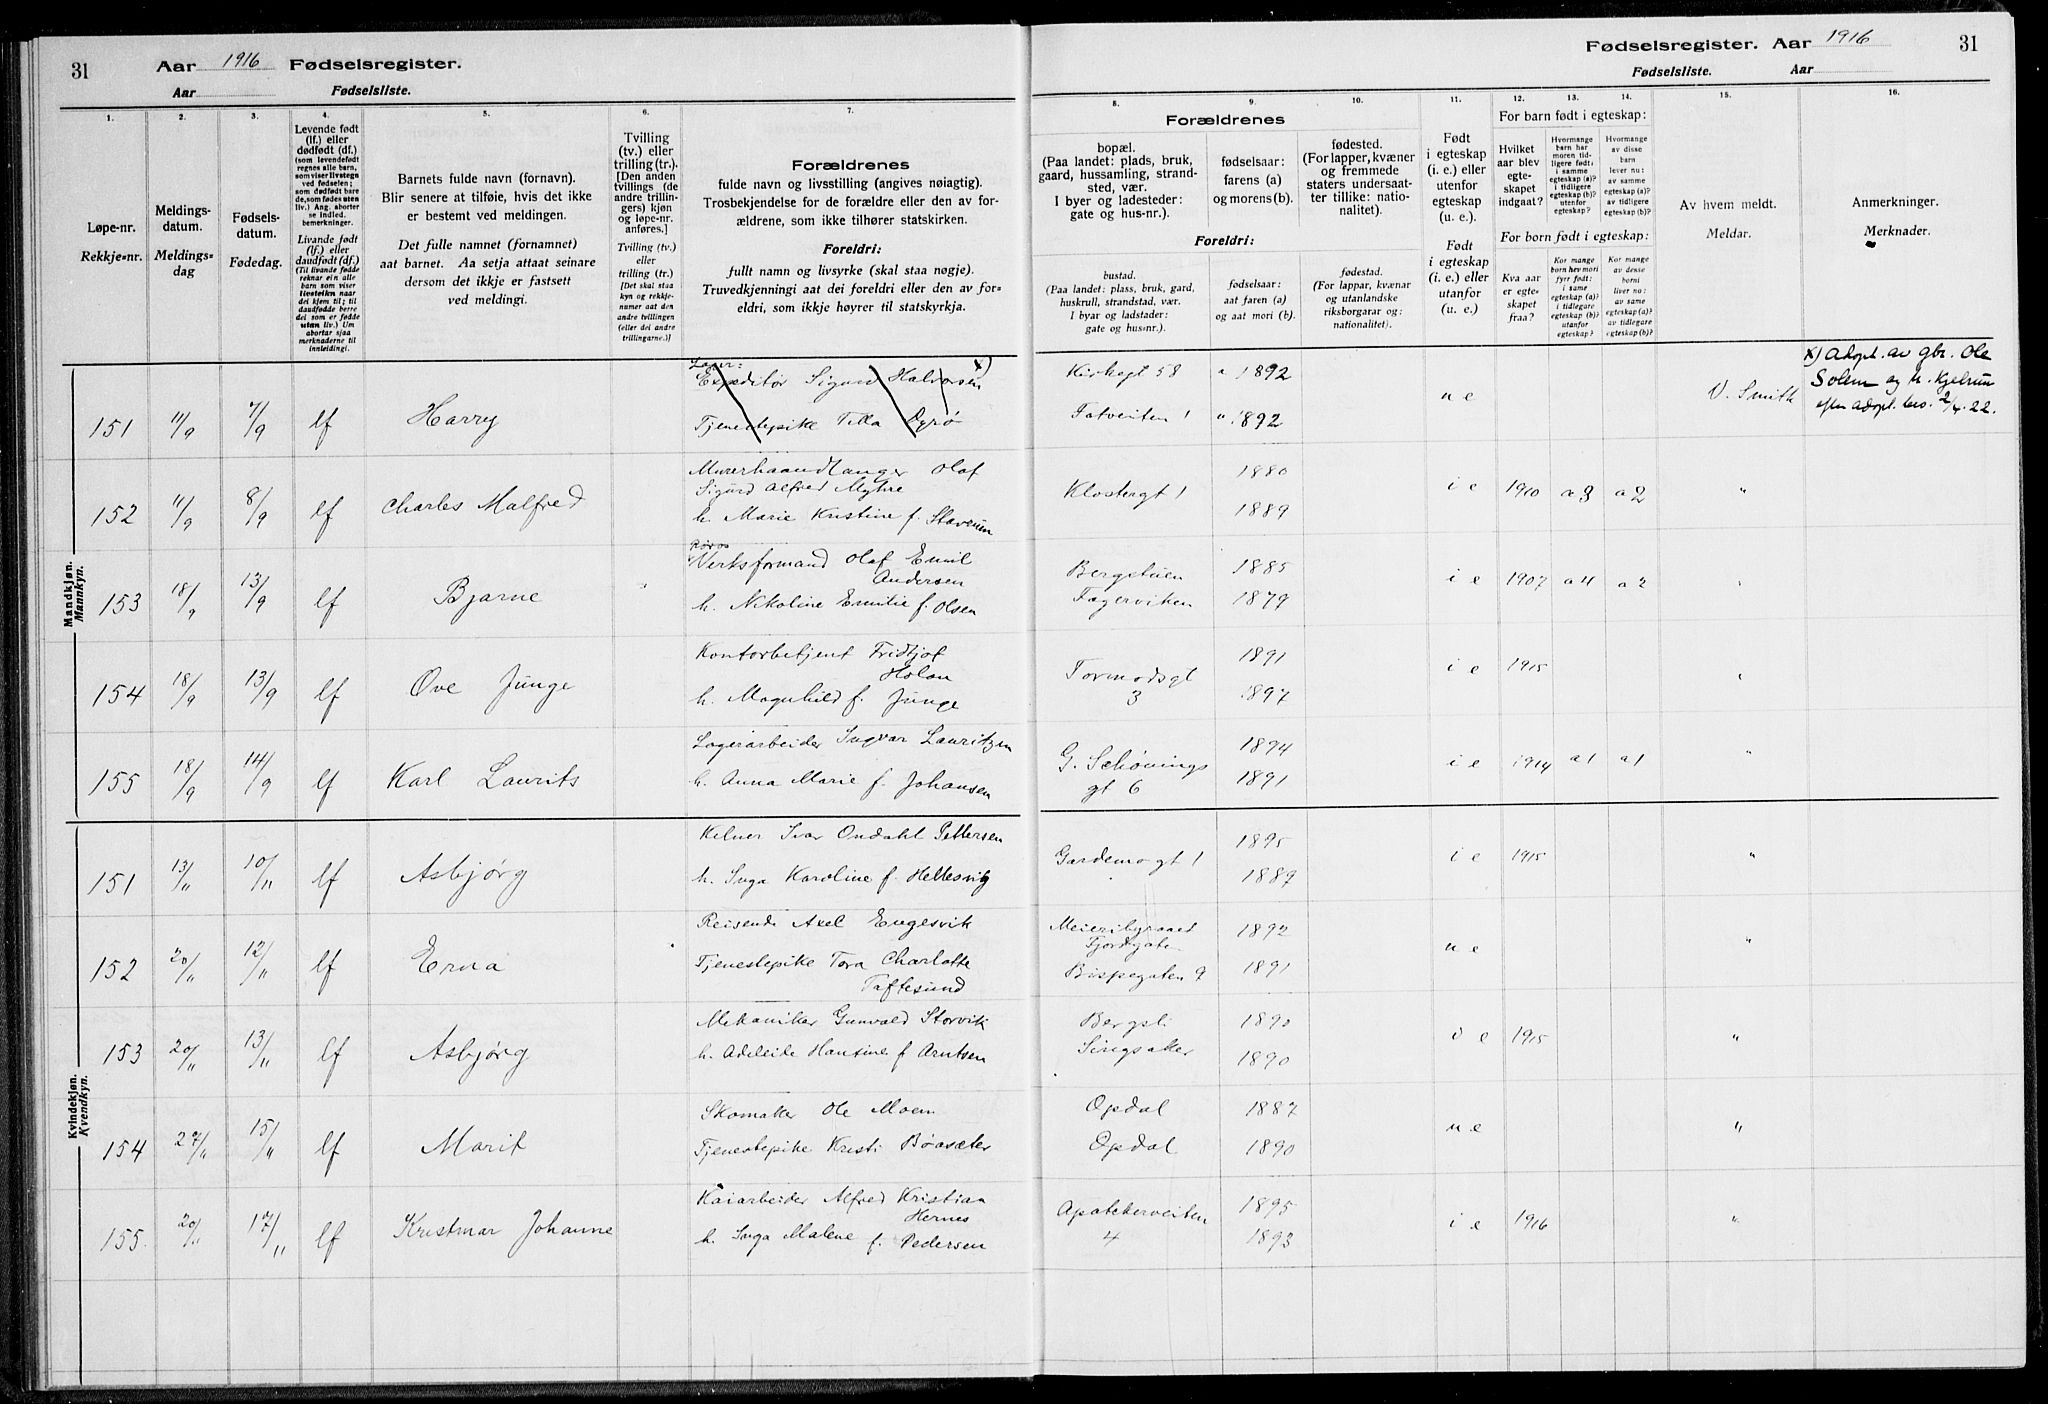 31 Aar 1916 Fødselsregister.
Aar Fødselsliste.
1. 2. 3. 4. 5. 6. 7.
Løpe-nr.
Rekkje-nr.
Meldings-
datum.
Meldings-
dag
Fødsels-
datum.
Fødedag.
Levende født
(lf.) eller
dødfødt (df.)
(som levendefødt
regnes alle barn,
som viser livstegn
ved fødselen;
som dødfødt bare
de, som fødes uten
liv.) Ang. aborter
se indled.
bemerkninger.
Livande født
(lf.) eller
daudfødt (df.)
(Til livande fødde
reknar ein alle
barn som viser
livsteikn naar
dei kjem til; til
daudfødde berre
dei som er fødde
utan liv.) Um
abortar sjaa
merknaderne til
innleidingi.
Barnets fulde navn (fornavn).
Blir senere at tilføie, hvis det ikke
er bestemt ved meldingen.
Det fulle namnet (fornamnet)
aat barnet. Aa setja attaat seinare
dersom det ikkje er fastsett
ved meldingi.
Tvilling
(tv.) eller
trilling (tr.).
[Den anden
tvillings (de
andre trillin-
gers) kjøn
og løpe-nr.
anføres.]
Tvilling (tv.)
eller
trilling (tr.)
[Det skal staa
kyn og rekkje-
numer aat den
andre tvillingen
(eller dei andre
trillingarne.)]
Forældrenes
fulde navn og livsstilling (angives nøiagtig).
Trosbekjendelse for de forældre eller den av for-
ældrene, som ikke tilhører statskirken.
Foreldri:
fullt namn og livsyrke (skal staa nøgje).
Truvedkjenningi aat dei foreldri eller den av for-
eldri, som ikkje høyrer til statskyrkja.
Mandkjøn.
Mannkyn.
151 11/9 7/9 lf Harry
Lager:
Expeditør Sigurd Halvorsen x)
Tjenestepike Tilla Dyrø
152 11/9 8/9 lf Charles Malfred
Murerhaandlanger Olaf
Sigurd Alfred Myhre
h. Marie Kristine f. Stavrum
153 18/9 13/9 lf Bjarne
Røros
Verksformand Olaf Emil
Andersen
h. Nikoline Emilie f. Olsen
154 18/9 13/9 lf Ove Junge
Kontorbetjent Fridtjof
Holan
h. Magnhild f. Junge
155 18/9 14/9 lf Karl Laurits
Lagerarbeider Ingvar Lauritzen
h. Anna Marie f. Johansen
Kvindekjøn.
Kvendkyn.
151 13/" 10/" lf Asbjørg
Kelner Ivar Ondahl Pettersen
h. Inga Karoline f. Hellesvig
152 20/" 12/" lf Erna
Reisende Axel Engesvik
Tjenestepike Tora Charlotte
Taftesund
153 20/" 13/" lf Asbjørg
Mekaniker Gunvald Storvik
h. Adeleide Hansine f Arntsen
154 27/" 15/" lf Marit
Skomaker Ole Moen
Tjenestepike Kristi Bøasæter
155. 20/" 17/" lf Kristmar Johanne
Kaiarbeider Alfred Kristian
Hernes
h. Inga Malene f. Pedersen
Fødselsregister. Aar 1916 31
Fødselsliste. Aar
8. 9. 10. 11. 12. 13. 14. 15. 16.
Forældrenes
bopæl.
(Paa landet: plads, bruk,
gaard, hussamling, strand-
sted, vær.
I byer og ladesteder:
gate og hus-nr.).
fødselsaar:
farens (a)
og morens (b).
fødested.
(For lapper, kvæner
og fremmede
staters undersaat-
ter tillike: natio-
nalitet).
Foreldri:
bustad.
(Paa landet: plass, bruk, gard,
huskrull, strandstad, vær.
I byar og ladstader:
gate og hus-nr.).
fødselsaar:
aat faren (a)
og aat mori (b).
fødestad.
(For lappar, kvænar
og utanlandske
riksborgarar og:
nationalitet).
Født
i egteskap
(i. e.) eller
utenfor
egteskap
(u. e.).
Født
i egteskap
(i. e.) eller
utanfor
(u. e.)
For barn født i egteskap:
Hvilket
aar blev
egte-
skapet
indgaat?
Hvormange
barn har
moren tid-
ligere født:
i samme
egteskap (a)?
i tidligere
egteskap (b)?
utenfor
egteskap?
Hvormange
av disse
barn
lever nu:
av samme
egteskap (a)?
av tidligere
egteskap (b)?
For born født i egteskap:
Kva aar
er egte-
skapet
fraa?
Kor mange
born hev mori
fyrr født:
i same
egteskap (a)?
i tidlegare
egteskap (b)?
utanfor
egteskap?
Kor mange
av desse
borni
liver no:
av same
egteskap (a)?
av tidlegare
egteskap (b)?
Av hvem meldt.
Meldar.
Anmerkninger.
Merknader.
Kirkegt 58 a 1892
Tatveiten 1 " 1892
u e V. Smith
x) Adopt. av gbr. Ole
Solem og h. Kjelrun
efter adopt. bev. 2/4.22.
Klostergt 1 1880
1889
i e 1910 a 3 a 2 "
Bergstuen 1885
Fagerviken 1879
i e 1907 a 4 a 2 "
Tormodsgt 1891
3 1897
i e 1915 "
G. Schønings 1894
gt 6 1891
i e 1914 a 1 a 1 "
Gardemogt 1 1895
1889
i e 1915 "
Meieribyraaet 1892
Fjordgaten
Bispegaten 9 1891
u e "
Bergsli 1890
Singsaker 1890
i e 1915 "
Opdal 1887
Opdal 1890
u e "
Apotekerveiten 1895
4 1893
i e 1916 "